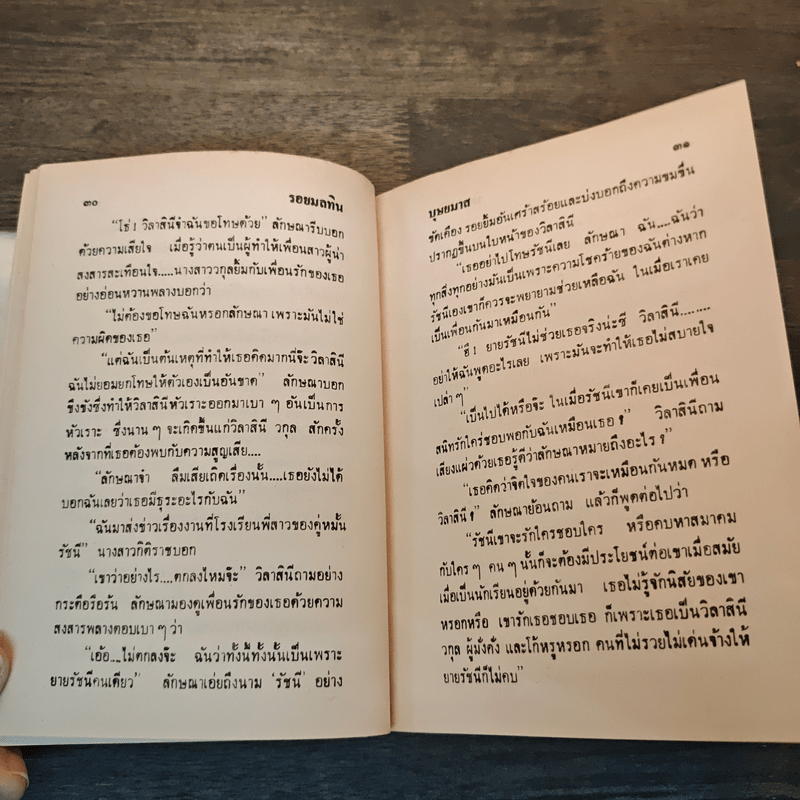 ๓๐
รอยมลทิน
“โธ่ ! วิลาสินีจ๋าฉันขอโทษด้วย” ลักษณารีบบอก
ด้วยความเสียใจ เมื่อรู้ว่าตนเป็นผู้ทำให้เพื่อนสาวผู้น่า
สงสารสะเทือนใจ....นางสาววกุลยิ้มกับเพื่อนรักของเธอ
อย่างอ่อนหวานพลางบอกว่า
“ไม่ต้องขอโทษฉันหรอกลักษณา เพราะมันไม่ใช่
ความผิดของเธอ”
“แต่ฉันเป็นต้นเหตุที่ทำให้เธอคิดมากนี่จ๊ะ วิลาสินี
ฉันไม่ยอมยกโทษให้ตัวเองเป็นอันขาด” ลักษณาบอก
ขึงขังซึ่งทำให้วิลาสินีหัวเราะออกมาเบา ๆ อันเป็นการ
หัวเราะ ซึ่งนาน ๆ จะเกิดขึ้นแก่วิลาสินี วกุล สักครั้ง
หลังจากที่เธอต้องพบกับความสูญเสีย....
“ลักษณาจ๋า ลืมเสียเถิดเรื่องนั้น....เธอยังไม่ได้
บอกฉันเลยว่าเธอมีธุระอะไรกับฉัน”
“ฉันมาส่งข่าวเรื่องงานที่โรงเรียนพี่สาวของคู่หมั้น
รัชนี” นางสาวกิติราชบอก
“เขาว่าอย่างไร....ตกลงไหมจ๊ะ” วิลาสินีถามอย่าง
กระตือรือร้น ลักษณามองดูเพื่อนรักของเธอด้วยความ
สงสารพลางตอบเบา ๆ ว่า
“เอ้อ....ไม่ตกลงจ๊ะ ฉันว่าทั้งนี้ทั้งนั้นเป็นเพราะ
ยายรัชนีคนเดียว” ลักษณาเอ่ยถึงนาม ‘รัชนี’ อย่าง
๓๑
บุษยมาส
ขัดเคือง รอยยิ้มอันเศร้าสร้อยและบ่งบอกถึงความขมขื่น
ปรากฏขึ้นบนใบหน้าของวิลาสินี
“เธออย่าไปโทษรัชนีเลย ลักษณา ฉัน....ฉันว่า
ทุกสิ่งทุกอย่างมันเป็นเพราะความโชคร้ายของฉันต่างหาก
รัชนีเองเขาก็ควรจะพยายามช่วยเหลือฉัน ในเมื่อเราเคย
เป็นเพื่อนกันมาเหมือนกัน”
“ฮึ ! ยายรัชนีไม่ช่วยเธอจริงน่ะซี วิลาสินี........
อย่าให้ฉันพูดอะไรเลย เพราะมันจะทำให้เธอไม่สบายใจ
เปล่า ๆ”
“เป็นไปได้หรือจ๊ะ ในเมื่อรัชนีเขาก็เคยเป็นเพื่อน
สนิทรักใคร่ชอบพอกับฉันเหมือนเธอ ?” วิลาสินีถาม
เสียงแผ่วด้วยเธอรู้ดีว่าลักษณาหมายถึงอะไร ?”
“เธอคิดว่าจิตใจของคนเราจะเหมือนกันหมด หรือ
วิลาสินี ?” ลักษณาย้อนถาม แล้วก็พูดต่อไปว่า
“รัชนีเขาจะรักใครชอบใคร หรือคบหาสมาคม
กับใคร ๆ คน ๆ นั้นก็จะต้องมีประโยชน์ต่อเขาเมื่อสมัย
เมื่อเป็นนักเรียนอยู่ด้วยกันมา เธอไม่รู้จักนิสัยของเขา
หรอกหรือ เขารักเธอชอบเธอ ก็เพราะเธอเป็นวิลาสินี
วกุล ผู้มั่งคั่ง และโก้หรูหรอก คนที่ไม่รวยไม่เด่นจ้างให้
ยายรัชนีก็ไม่คบ”